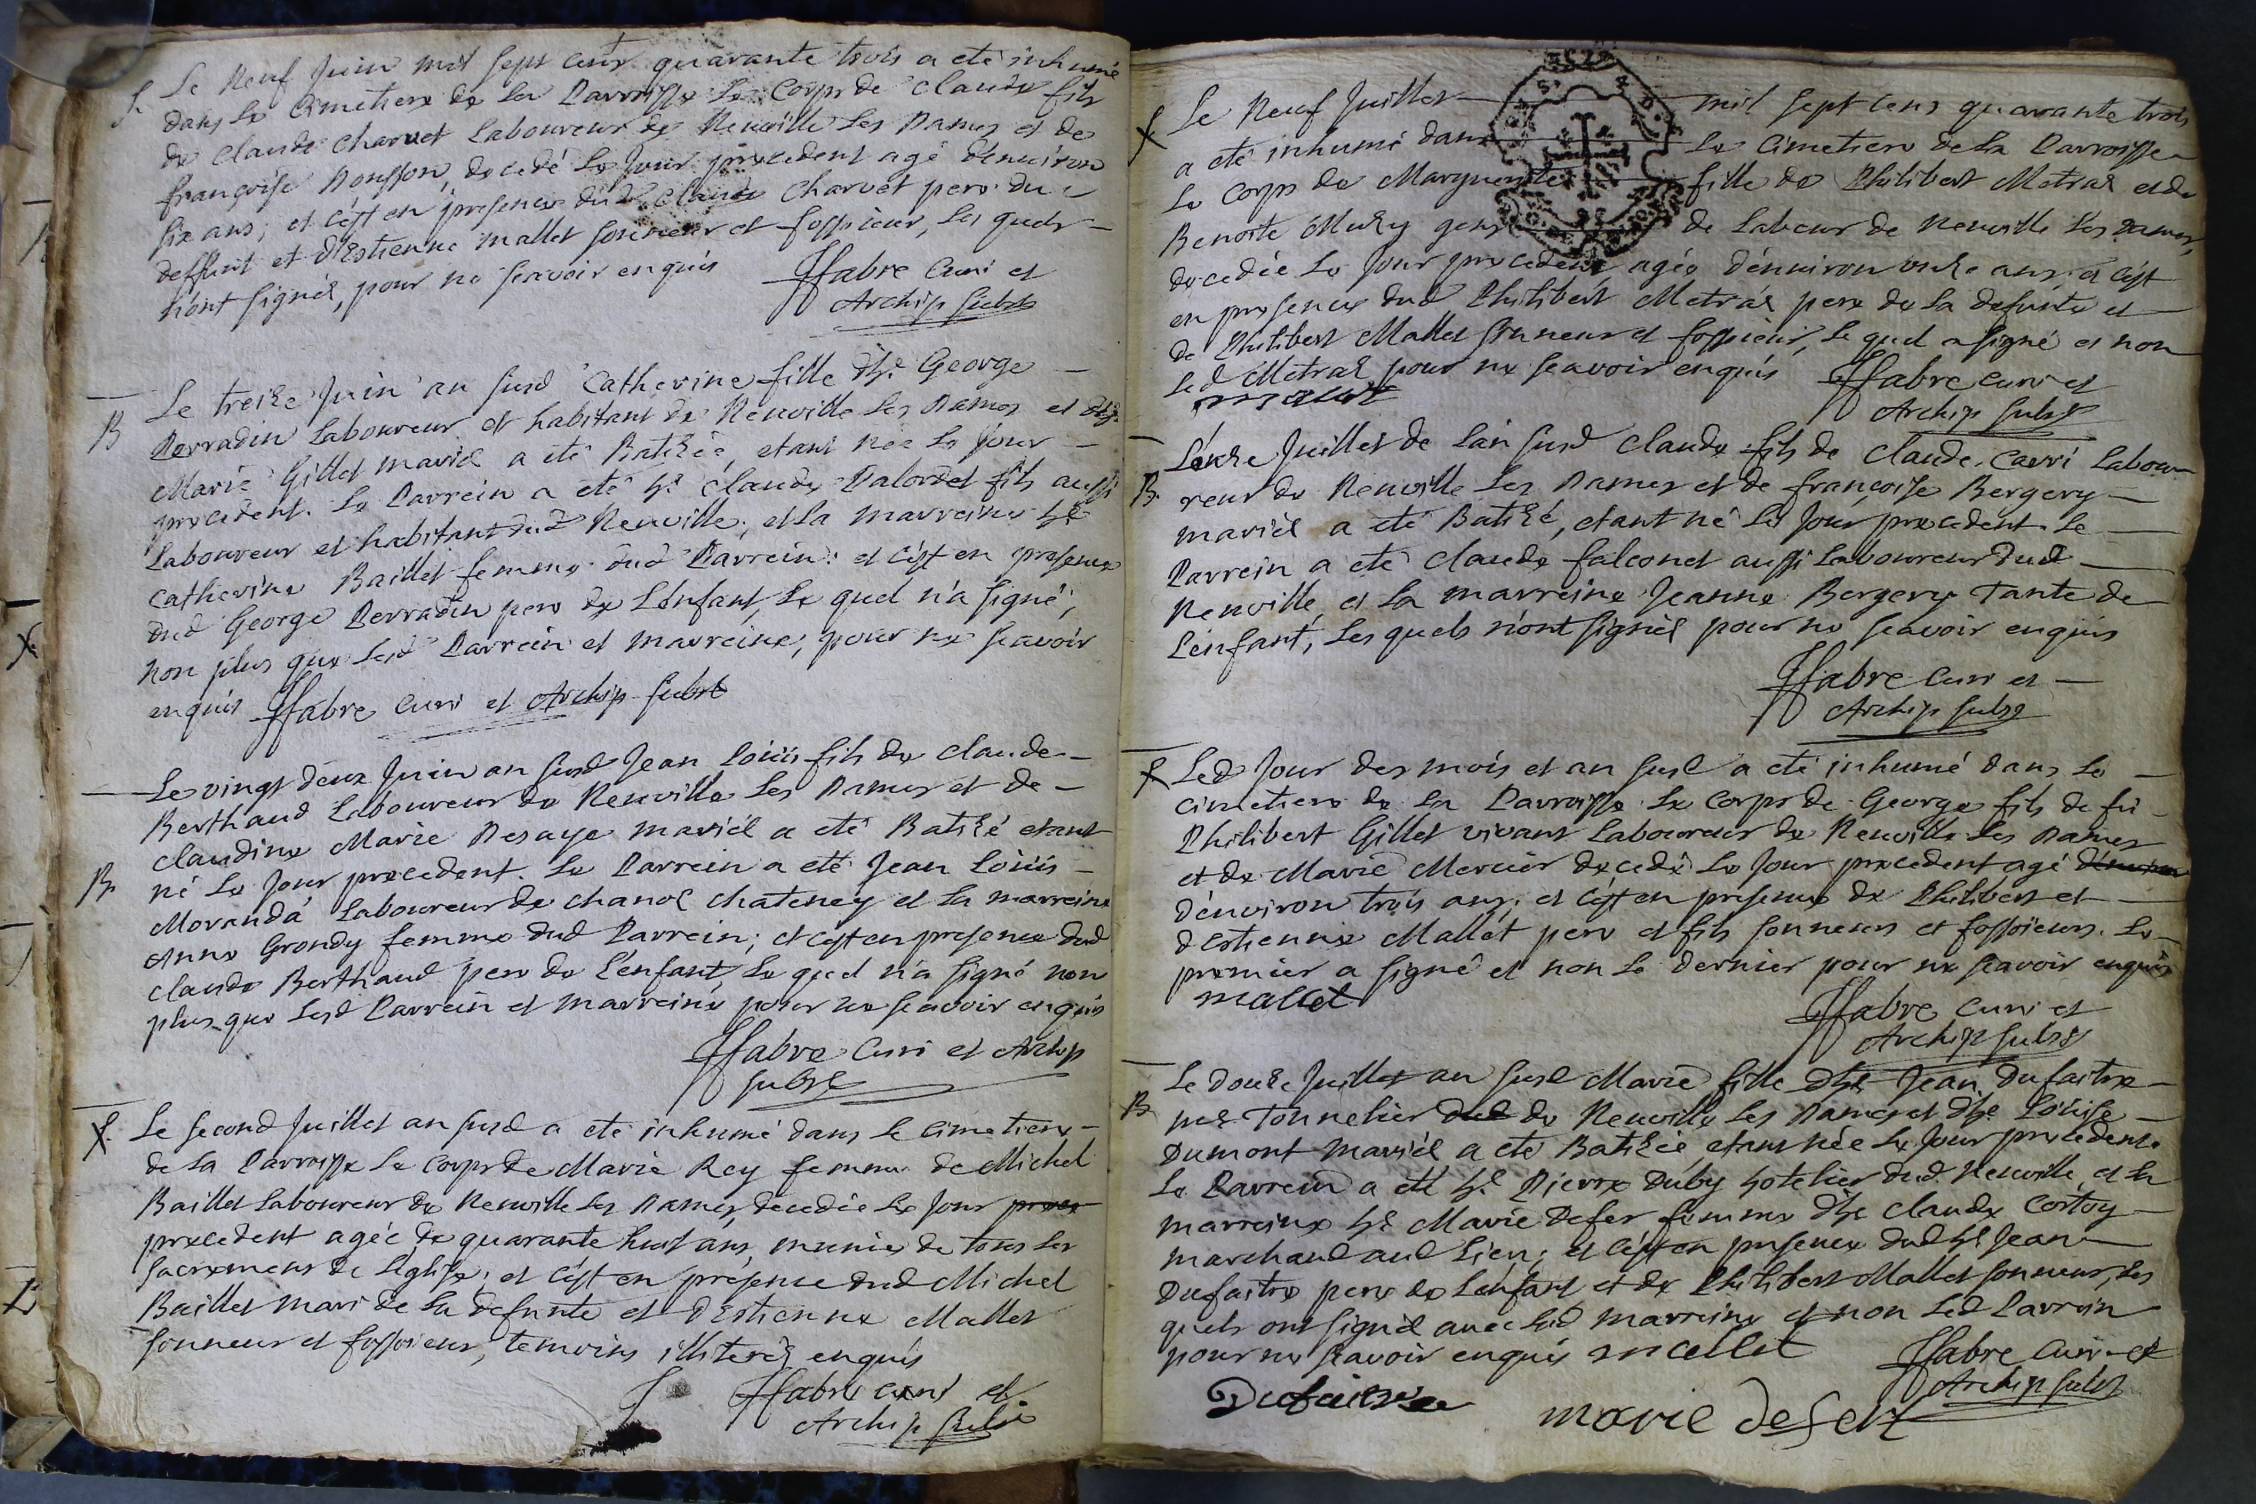 Le Neuf Juin mil sept cens quarante trois a eté inhumé
dans le Cimetiere de la Parroisse le Corps de Claude fils
de Claude Charvet Laboureur de Neuville les Dames et de
françoise Ponsson, decedé le Jour precedent agé d'environ
six ans; et c'est en presence dud. Claude Charvet pere du
deffunt et d'Estienne mallet sonneur et fossoieur, les quels
n'ont signés, pour ne scavoir enquis
ffabre Curé et
Archip subse
Le treize Juin an susd Catherine fille d'hte George
B Perradin Laboureur et habitant de Neuville les Dames et d'hte
Marie Gillet mariés a eté Batisée, etant née le Jour
precedent. Le Parrein a eté ht Claude Palordet fils aussi
Laboureur et habitant dud Neuville; et la marreine hte
Catherine Baillet femme dud Parrein: et c'est en presence
dud George Perradin pere de L'enfant, le quel n'a signé,
non plus que lesd Parrein et marreine, pour ne scavoir
enquis ffabre Curé et Archip subse
Le vingt deux Juin an susd Jean Loüis fils de Claude
Berthaud Laboureur de Neuville les Dames et de
Claudine Marie Desaye mariés a eté Batisé etant
B né le Jour precedent. Le Parrein a eté Jean Loüis
Moranda Laboureur de chanos chateney et la marreine
Anne Grondy femme dud Parrein; et c'est en presence dud
Claude Berthaud pere de L'enfant, le quel n'a signé non
plus que lesd Parrein et marreine pour ne scavoir enquis
ffabre Curé et Archip
subse
Le second Juillet an susd a eté inhumé dans le Cimetiere
de la Parroisse le Corps de Marie Rey femme de Michel
Baillet Laboureur de Neuville les Dames, decedée le Jour
precedent agée de quarante huit ans, munie de tous les
sacremens de L'eglise; et c'est en présence dud Michel
Baillet mari de la defunte et d'Estienne Mallet
sonneur et fossoieur, temoins illiterés enquis
ffabre curé et
Archip subse
Le Neuf Juillet mil sept cens quarante trois
a eté inhumé dans le Cimetiere de la Parroisse
le Corps de Marguerite fille de Philibert Metras et de
Benoite Mury gens de Labour de Neuville les Dames,
decedée le Jour precedent agée d'environ onze ans; et c'est
en presence dud Philibert Metras pere de la defunte et
de Philibert Mallet sonneur et fossoieur, le quel a signé et non
led Metras pour ne scavoir enquis ffabre curé et
mallet Archip subse
L'onze Juillet de L'an susd Claude fils de Claude Carri Labou-
B. reur de Neuville les Dames et de françoise Bergery
mariés a eté Batisé, etant né le Jour precedent. Le
Parrein a eté Claude falconet aussi Laboureur dud
Neuville, et la marreine Jeanne Bergery Tante de
L'enfant, les quels n'ont signés pour ne scavoir enquis
ffabre Curé et
Archip subse
Led Jour des mois et an susd a eté inhumé dans le
Cimetiere de la Parroisse le Corps de George fils de fû
Philibert Gillet vivant Laboureur de Neuville les Dames
et de Marie Mercier decedé le Jour precedent agé
d'environ trois ans; et c'est en presence de Philibert et
d'Estienne Mallet pere et fils sonneurs et fossoieurs. Le
premier a signé et non le dernier pour ne scavoir enquis
mallet ffabre Curé et
Archip subse
Le douze Juillet an susd Marie fille d'ht Jean Dufaitre
B me Tonnelier dud de Neuville les Dames et d'hte Loüise
Dumont mariés a eté Batisée, etant née le Jour precedent.
Le Parrein a eté ht Pierre Duby hotelier dud Neuville, et la
marreine hte Marie Defer femme d'ht Claude Cortoy
marchand aud Lieu; et c'est en presence dud ht Jean
Dufaitre pere de L'enfant et de Philibert Mallet sonneur, les
quels ont signés avec lad marreine et non led Parrein
pour ne scavoir enquis mallet ffabre Curé et
Archip subse
Dufaitre marie defer